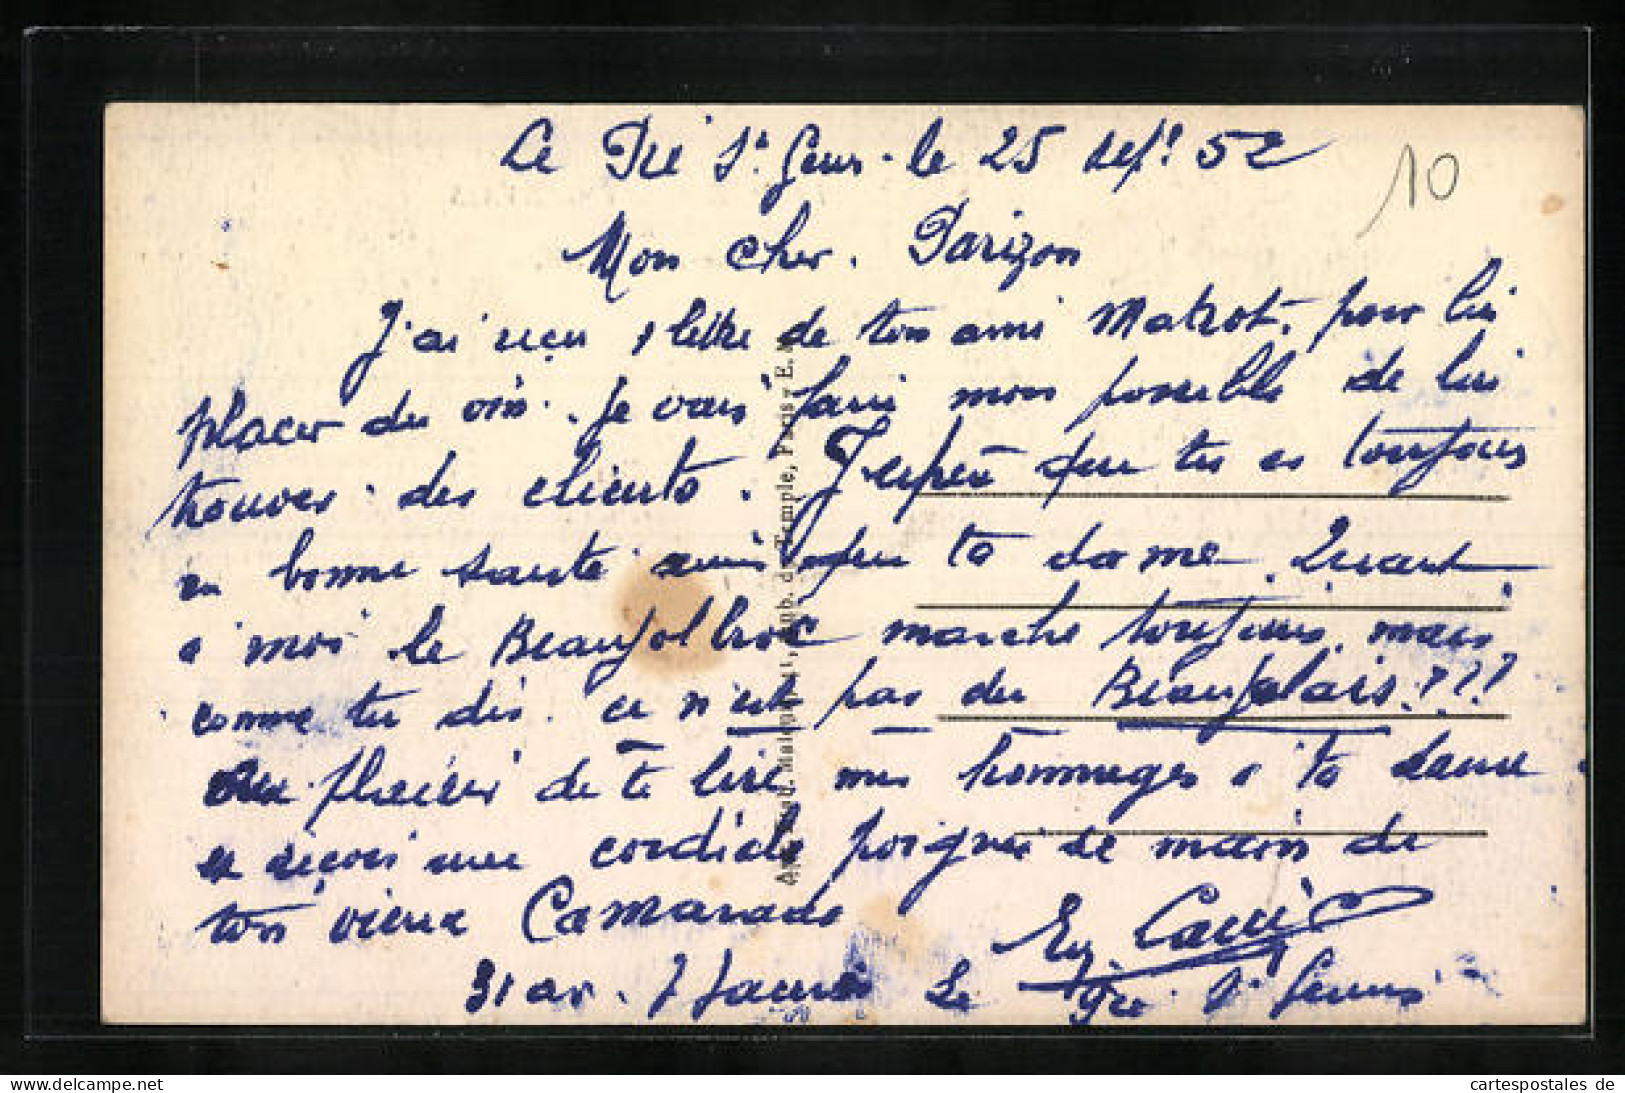 Le Pré St Gerv. le 25 sept 52
10
Mon cher. Parizon
J'ai reçu 1 lettre de ton ami Matrot, pour lui
placer du vin. Je vais faire mon possible de lui
trouver des clients. J'espère que tu es toujours
en bonne santé ainsi que ta dame. Quant
à moi le Beaujol marche toujours, mais
comme tu dis. ce n'est pas du Beaujolais!???
Au plaisir de te lire mes hommages à ta dame
et reçois une cordiale poignée de main de
ton vieux Camarade
31 av. J Jaurès Le Pré St Gervais
Imp. Malcuit, Faub. du Temple, Paris - E. M
cartespostales-kaufen-und-verkaufen.eu
cartespostales de